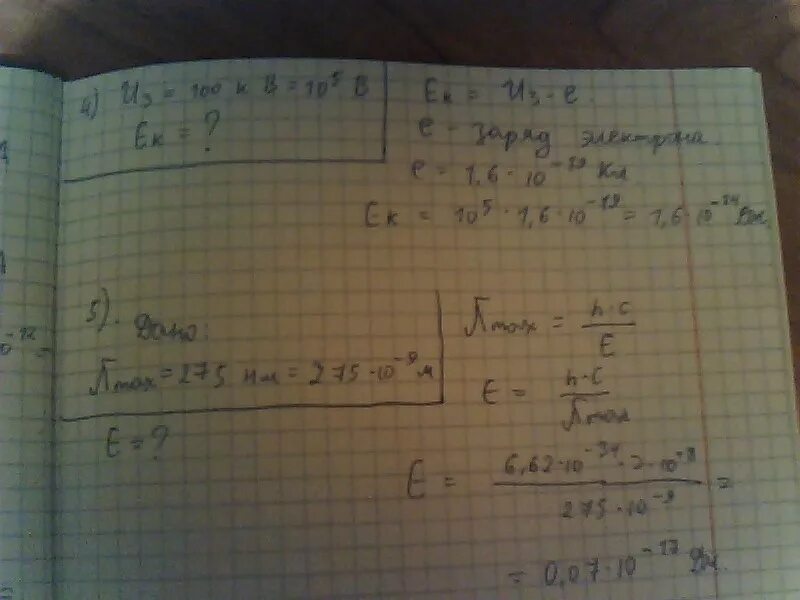 4) Uз = 100 к В = 10⁵ В
Eк = ?
Eк = Uз · e.
e - заряд электрона.
e = 1,6 · 10⁻¹⁹ Кл
Eк = 10⁵ · 1,6 · 10⁻¹⁹ = 1,6 · 10⁻¹⁴ Дж.
5). Дано:
λmax = 275 нм = 275 · 10⁻⁹ м
E = ?
λmax = h·c / E
E = h·c / λmax
E = 6,62·10⁻³⁴ · 3·10⁻⁸ / 275 · 10⁻⁹ =
= 0,07 · 10⁻¹⁷ Дж.